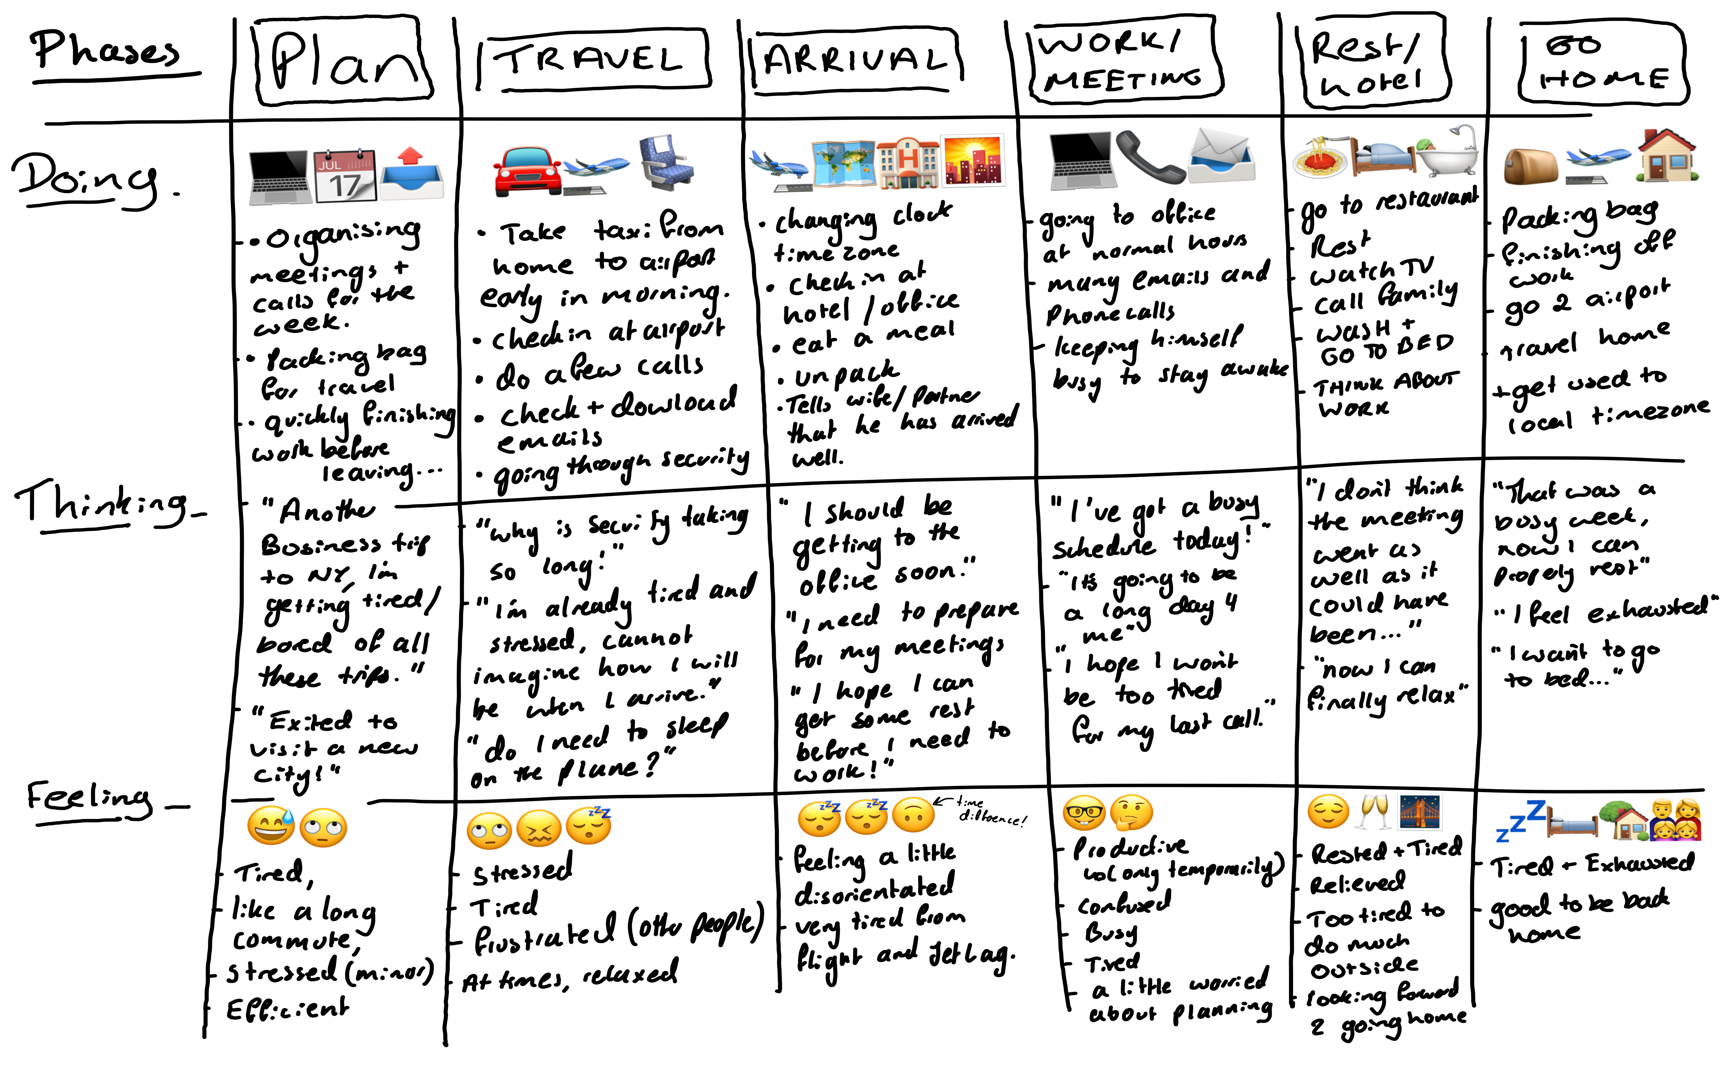 Phases
Plan
TRAVEL
ARRIVAL
WORK/
MEETING
Rest/
hotel
GO
HOME
Doing.
JUL
17
- • Organising
meetings +
calls for the
week.
• Packing bag
for travel
• quickly finishing
work before
leaving...
• Take taxi from
home to airport
early in morning.
• check in at airport
• do a few calls
• check + dowload
emails
• going through security
• changing clock
timezone
• check in at
hotel / office
• eat a meal
• unpack
• Tells wife/partner
that he has arrived
well.
- going to office
at normal hours
- many emails and
Phonecalls
- keeping himself
busy to stay awake
- go to restaurant
- Rest
- watch TV
- call family
- WASH +
GO TO BED
- THINK ABOUT
WORK
- Packing bag
- finishing off
work
- go 2 airport
- travel home
+ get used to
local timezone
Thinking -
- "Another
Business trip
to NY, I'm
getting tired/
bored of all
these trips."
- "Exited to
visit a new
city!"
"why is security taking
so long!"
- "I'm already tired and
stressed, cannot
imagine how I will
be when I arrive."
"do I need to sleep
on the plane?"
" I should be
getting to the
office soon."
"I need to prepare
for my meetings
" I hope I can
get some rest
before I need to
work!"
"I've got a busy
schedule today!"
- "it's going to be
a long day 4
me"
- "I hope I won't
be too tired
for my last call."
"I don't think
the meeting
went as
well as it
could have
been..."
- "now I can
finally relax"
- "That was a
busy week,
now I can
propely rest"
- "I feel exhausted"
- "I want to go
to bed..."
Feeling -
- Tired,
- like a long
commute,
- stressed (minor)
- Efficient
- Stressed
- Tired
- frustrated (other people)
- At times, relaxed
time
difference!
- feeling a little
disorientated
- very tired from
flight and Jetlag.
- Productive
(only temporarily)
- Confused
- Busy
- Tired
- a little worried
about planning
- Rested + Tired
- Relieved
- Too tired to
do much
outside
- looking forward
2 going home
zzz
- Tired + Exhausted
- good to be back
home